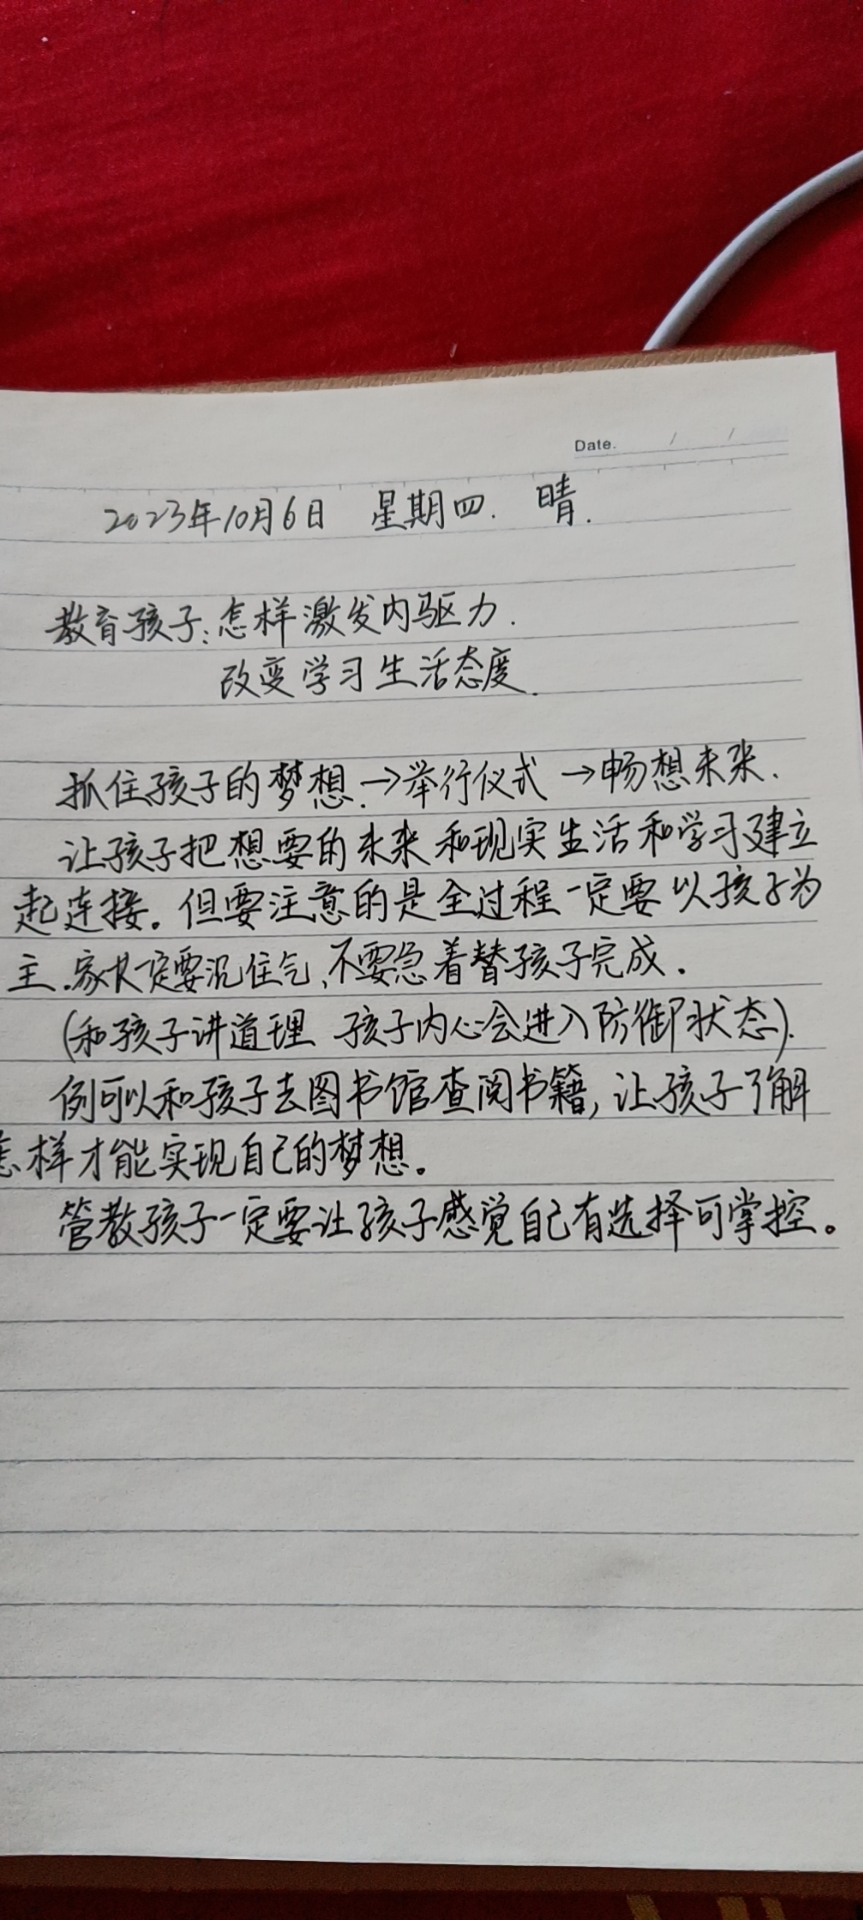 Date. / /
2023年10月6日 星期四. 晴.
教育孩子:怎样激发内驱力.
改变学习生活态度.
抓住孩子的梦想.→举行仪式→畅想未来.
让孩子把想要的未来和现实生活和学习建立
起连接。但要注意的是全过程一定要以孩子为
主.家长一定要沉住气,不要急着替孩子完成.
(和孩子讲道理 孩子内心会进入防御状态).
例可以和孩子去图书馆查阅书籍,让孩子了解
怎样才能实现自己的梦想。
管教孩子一定要让孩子感觉自己有选择可掌控。